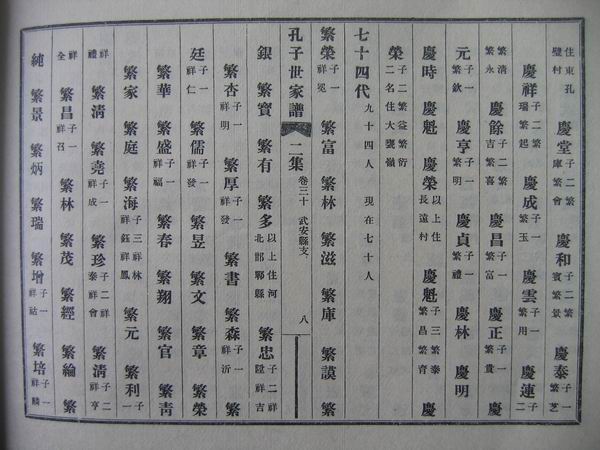 住東孔璧村 慶堂 子二繁庫繁會 慶和 子二繁賓繁景 慶泰 子一繁芝
慶祥 子二繁瑞繁起 慶成 子一繁玉 慶雲 子一繁用 慶蓮 子二
繁清繁永 慶餘 子二繁吉繁喜 慶昌 子一繁富 慶正 子一繁貴 慶
元 子一繁欽 慶亨 子一繁明 慶貞 子一繁禮 慶林 慶明
慶時 慶魁 慶榮 以上住長遠村 慶魁 子三繁泰繁昌繁育 慶
榮 子二繁益繁衍二名住大甕嶺
七十四代 九十四人 現在七十人
繁榮 子一祥冕 繁富 繁林 繁滋 繁庫 繁謨 繁
孔子世家譜 二集 卷三十 武安縣支 八
銀 繁寶 繁有 繁多 以上住河北邯鄲縣 繁忠 子二祥陞祥吉
繁杏 子一祥明 繁厚 子一祥發 繁書 繁森 子一祥沂 繁
廷 子一祥仁 繁儒 子一祥發 繁昱 繁文 繁章 繁榮
繁華 繁盛 子一祥福 繁春 繁翔 繁官 繁青
繁家 繁庭 繁海 子三祥林祥鈺祥鳳 繁元 繁利 子一
祥禮 繁清 繁堯 子一祥成 繁珍 子二祥泰祥會 繁淸 子二祥亨
祥全 繁昌 子一祥召 繁林 繁茂 繁經 繁綸 繁
純 繁景 繁炳 繁瑞 繁增 子一祥祜 繁培 子一祥麟